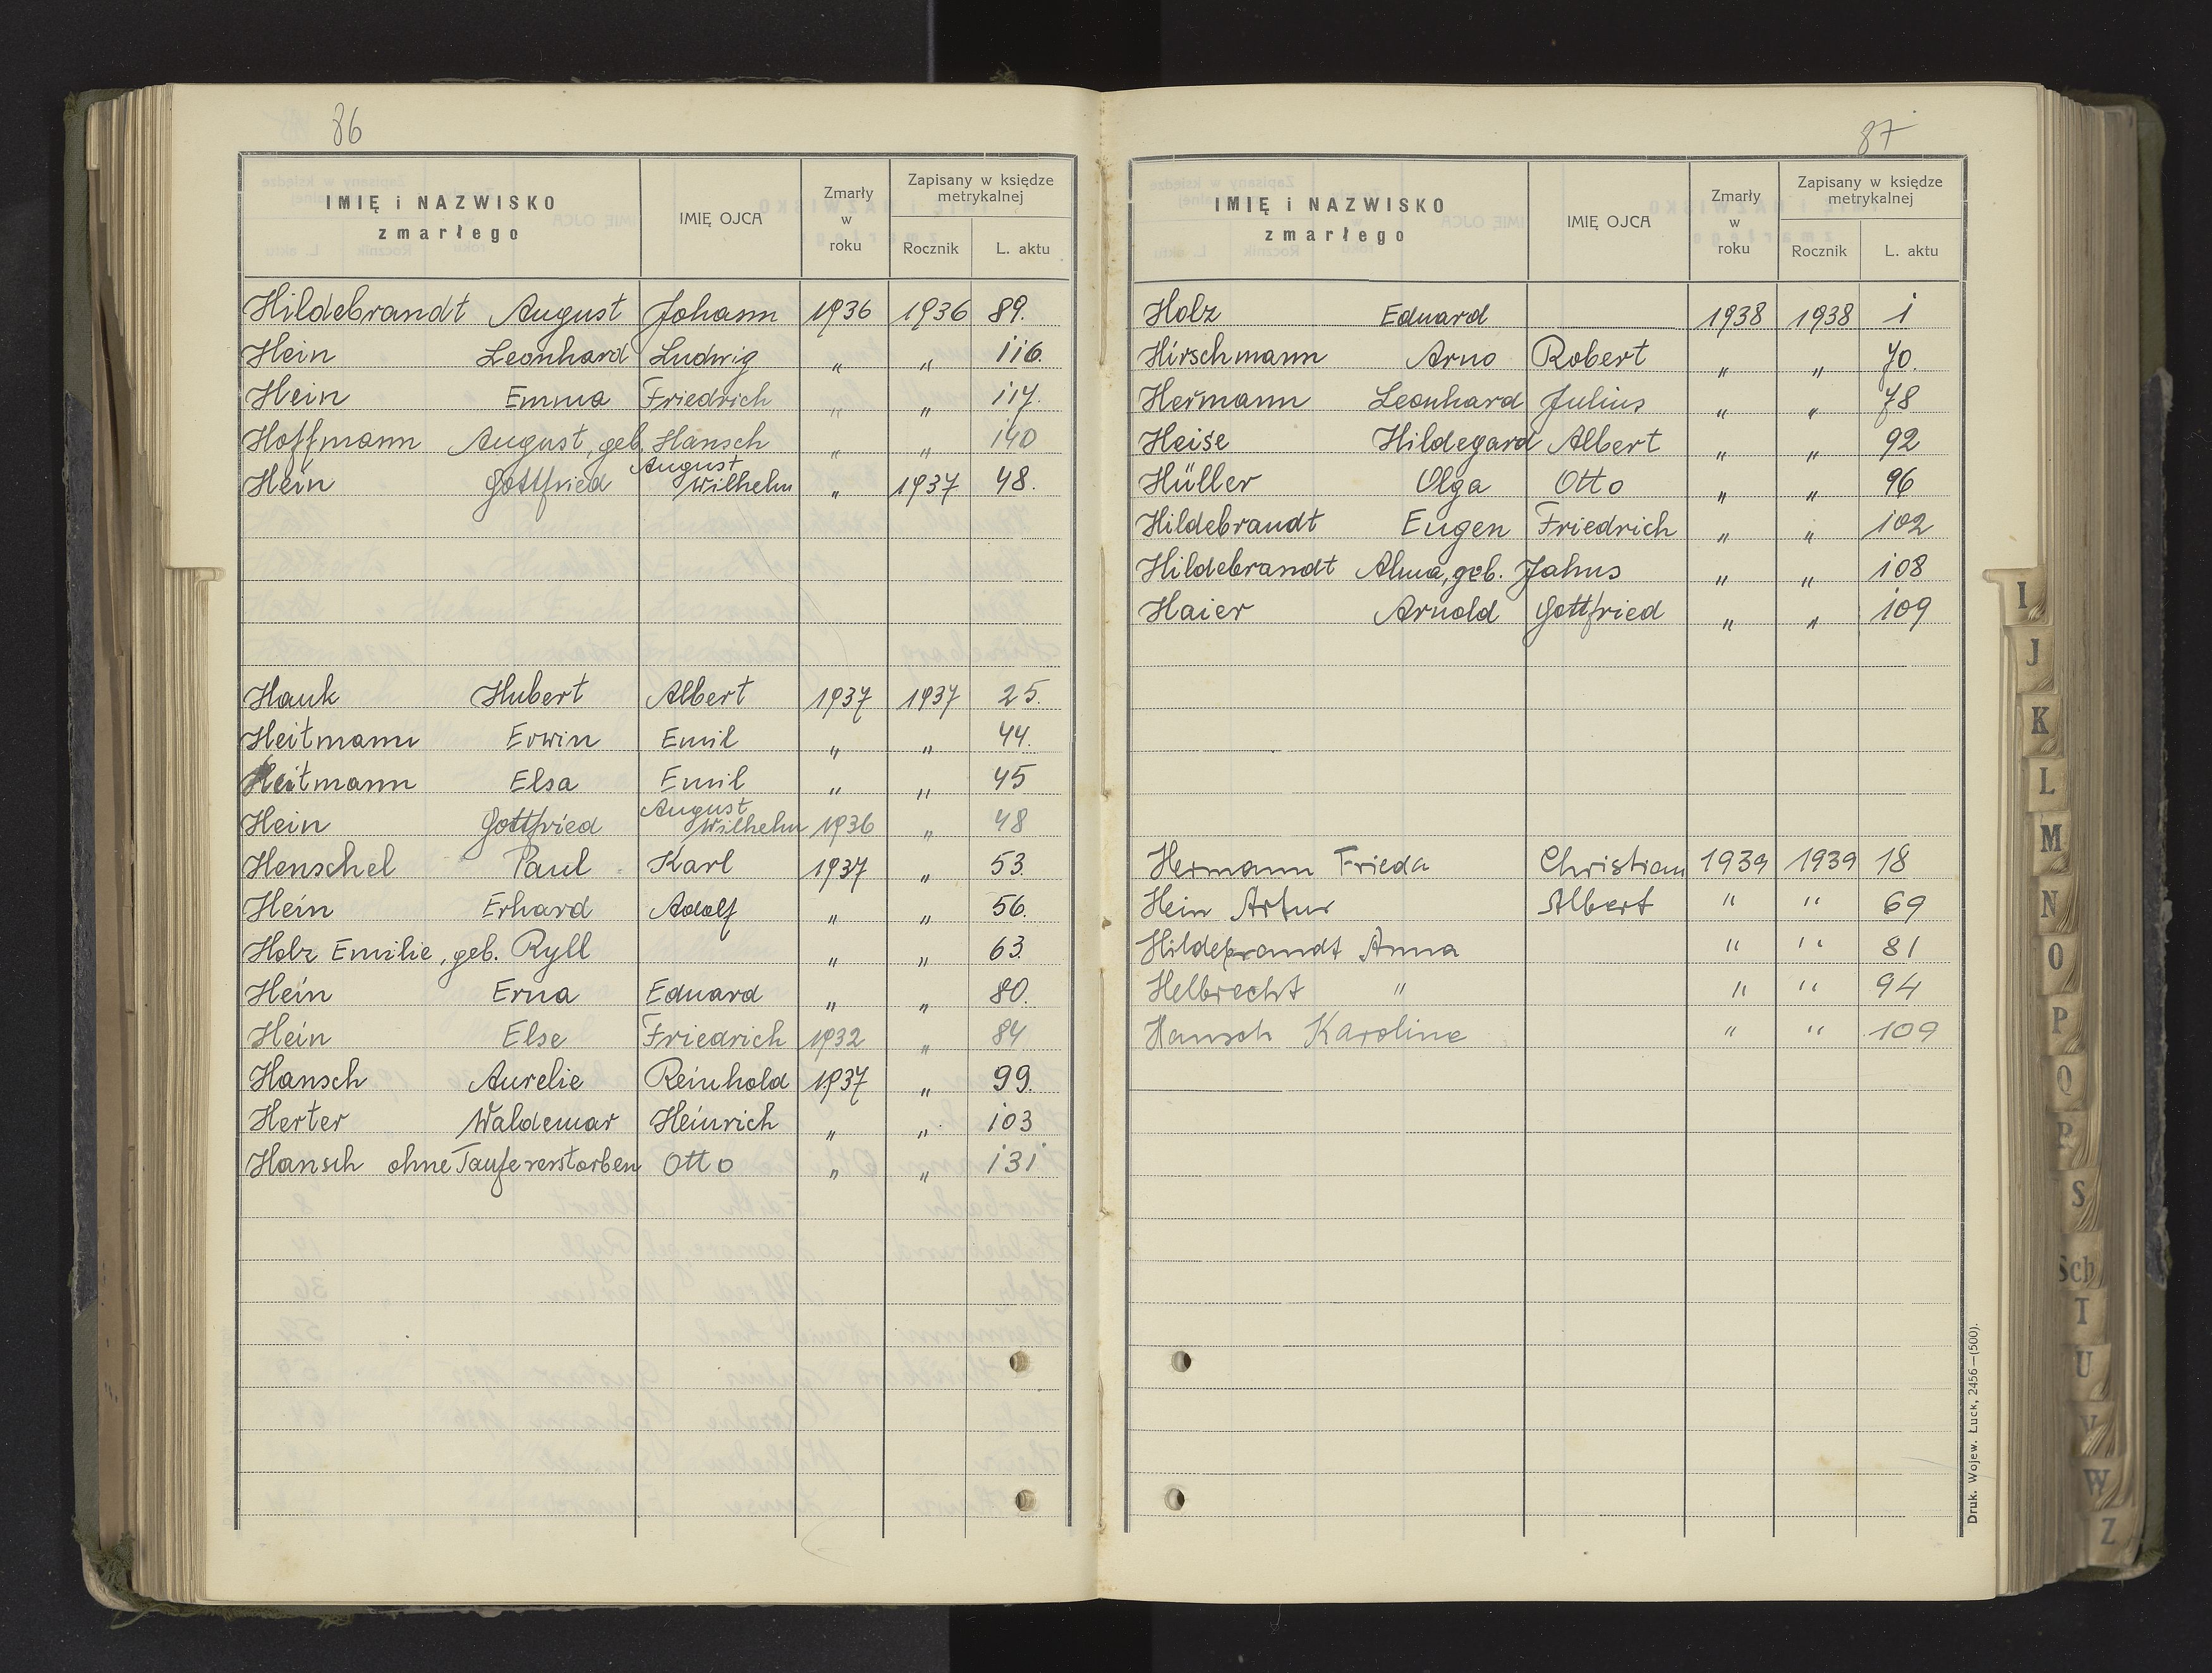 86
IMIĘ i NAZWISKO zmarłego IMIĘ OJCA Zmarły w roku Zapisany w księdze metrykalnej Rocznik L. aktu
Hildebrandt August Johann 1936 1936 89.
Hein Leonhard Ludwig " " 116.
Hein Emma Friedrich " " 117.
Hoffmann August, geb. Hansch " " 140
Hein Gottfried August Wilhelm " 1937 48.
Hauk Hubert Albert 1937 1937 25.
Heitmann Erwin Emil " " 44.
Heitmann Elsa Emil " " 45
Hein Gottfried August Wilhelm 1936 " 48
Henschel Paul Karl 1937 " 53.
Hein Erhard Adolf " " 56.
Holz Emilie, geb. Ryll " " 63.
Hein Erna Eduard " " 80.
Hein Else Friedrich 1932 " 84
Hansch Aurelie Reinhold 1937 " 99.
Herter Waldemar Heinrich " " 103
Hansch ohne Taufe verstorben Otto " " 131
87
IMIĘ i NAZWISKO zmarłego IMIĘ OJCA Zmarły w roku Zapisany w księdze metrykalnej Rocznik L. aktu
Holz Eduard 1938 1938 1
Hirschmann Arno Robert " " 70.
Hermann Leonhard Julius " " 78
Heise Hildegard Albert " " 92
Hüller Olga Otto " " 96
Hildebrandt Eugen Friedrich " " 102
Hildebrandt Alma, geb. Jahns " " 108
Haier Arnold Gottfried " " 109
Hermann Frieda Christian 1939 1939 18
Hein Artur Albert " " 69
Hildebrandt Anna " " 81
Helbrecht " " " 94
Hansch Karoline " " 109
Druk. Wojew. Łuck, 2456—(500).
I
J
K
L
M
N
O
P
Q
R
S
Sch
T
U
V
W
Z